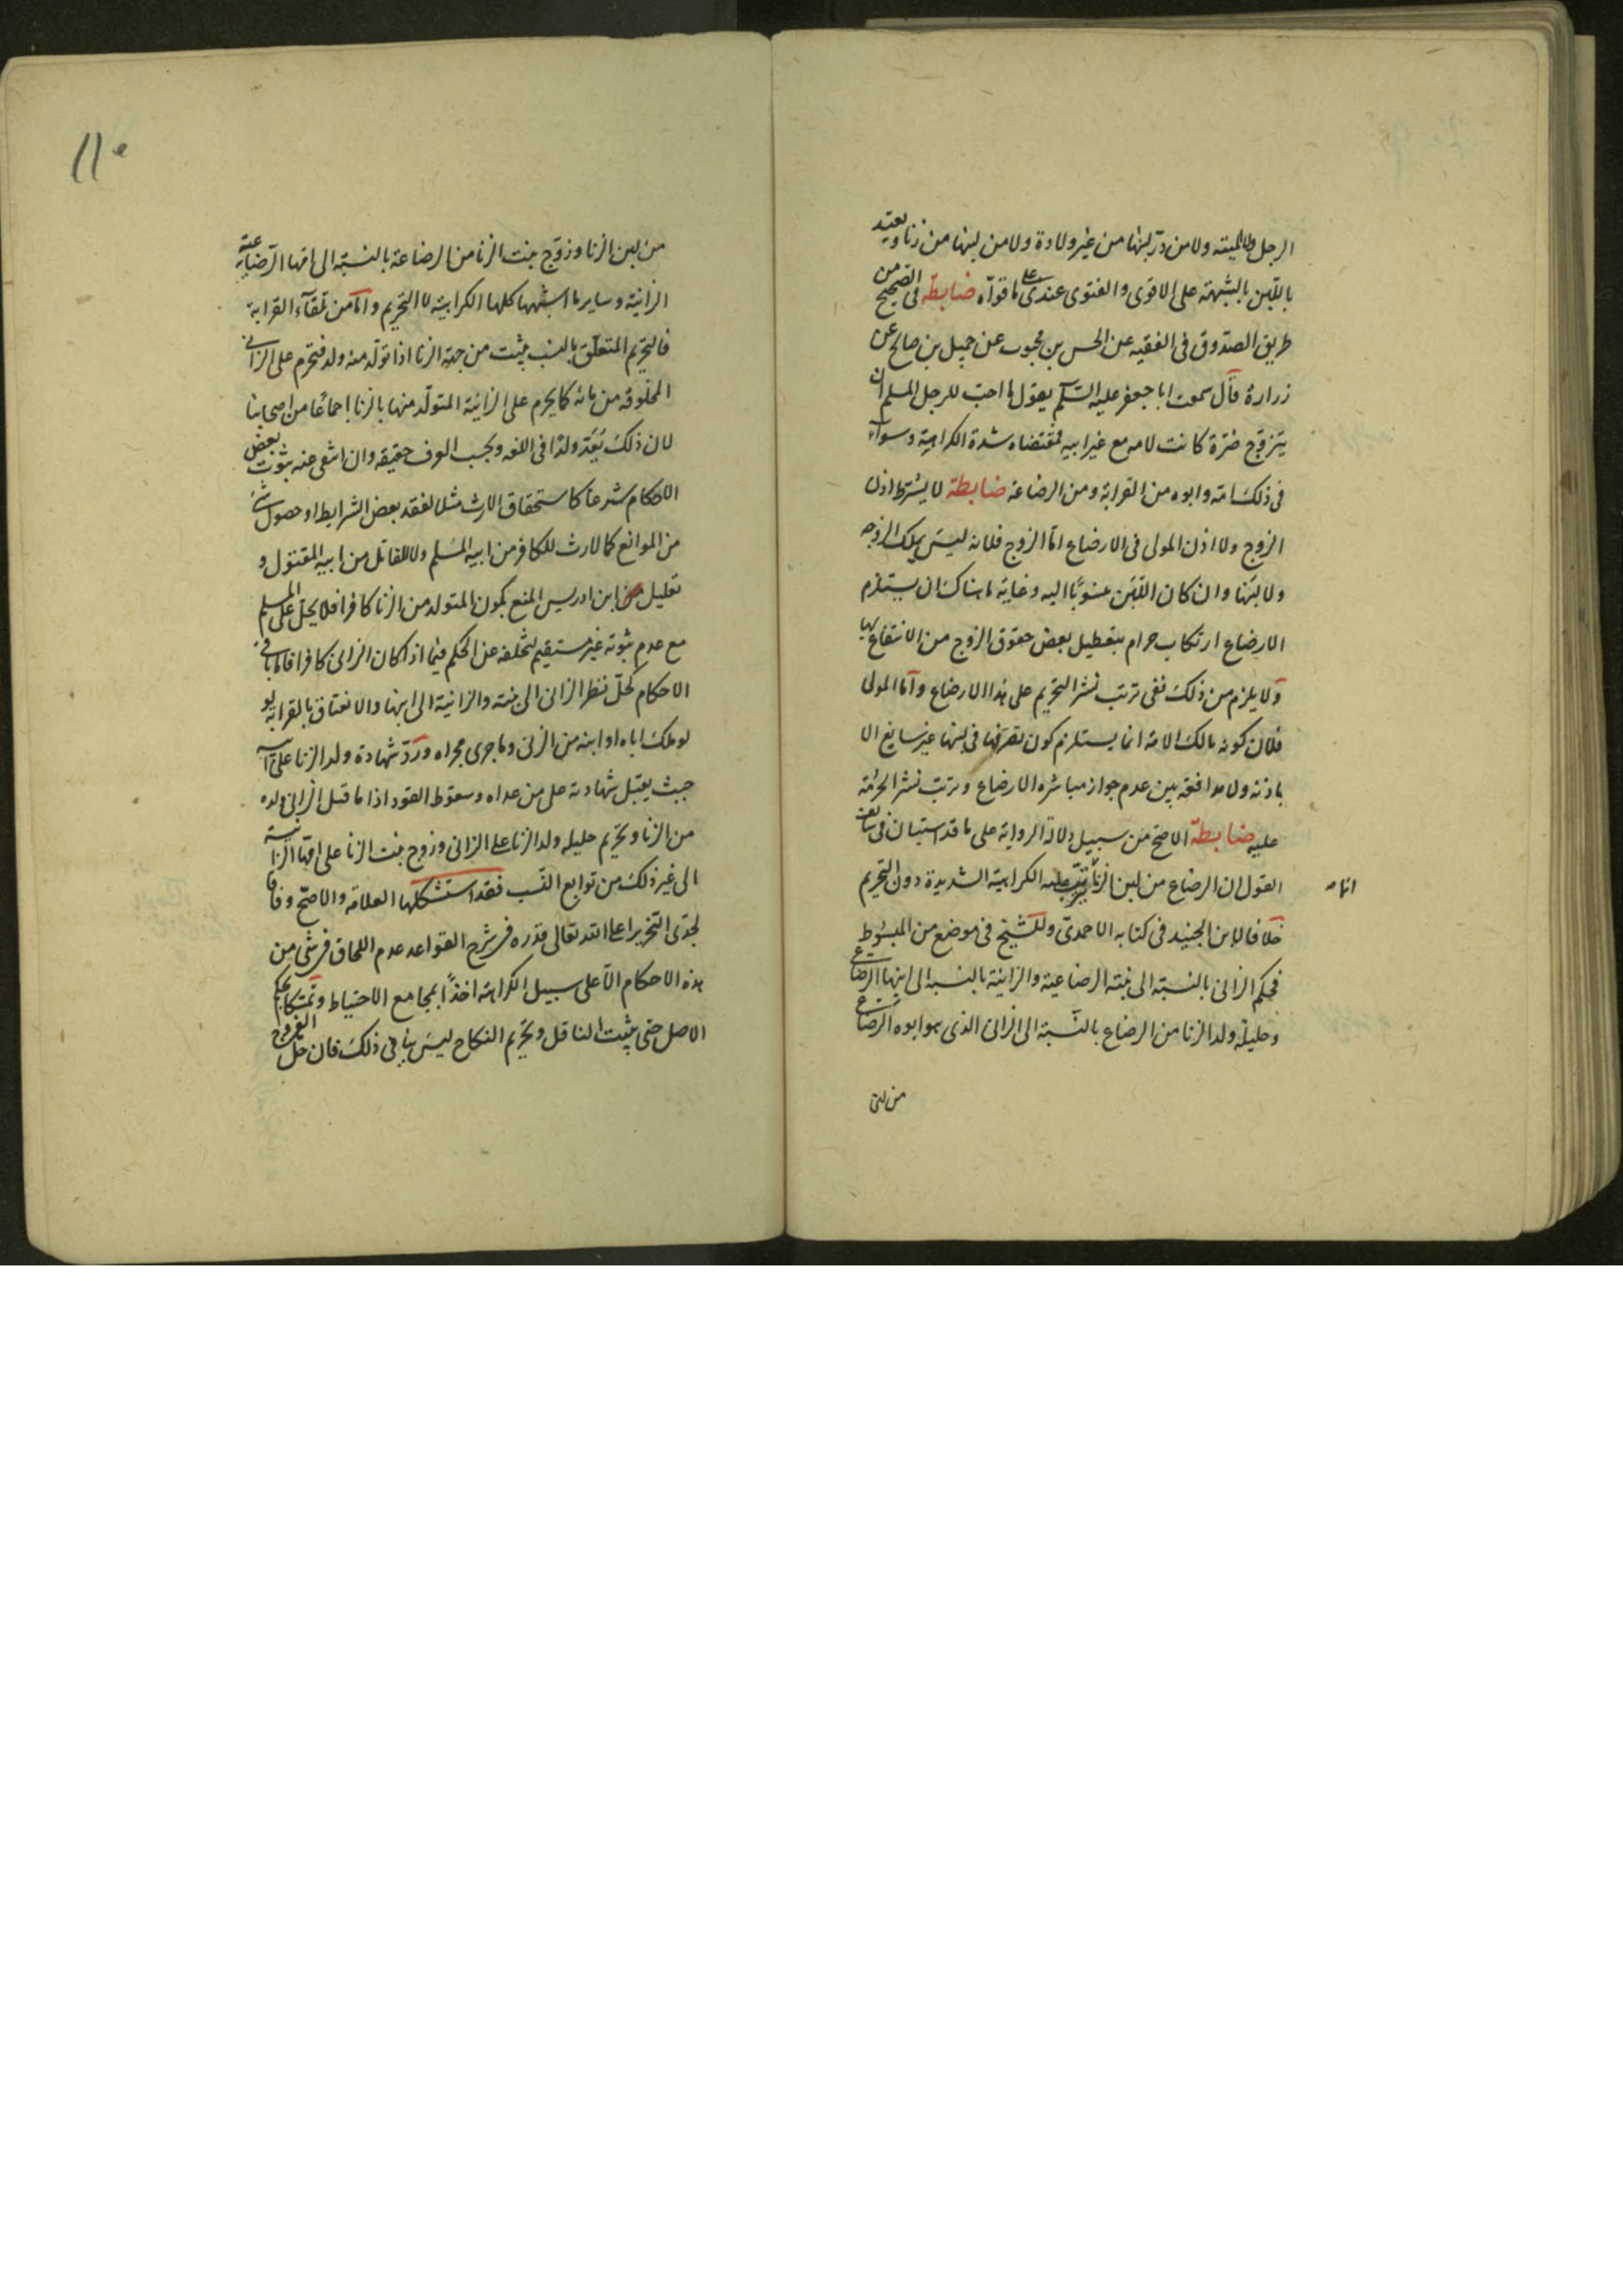 الرجل ولا الميتة ولا من در لبنها من غير ولادة ولا من لبنها من زنا ويعتد
باللبن بالشبهة على الاقوى والفتوى عندى على ما قواه ضابطة فى الصحيح من
طريق الصدوق فى الفقيه عن الحسن بن محبوب عن جميل بن صالح عن
زرارة قال سمعت ابا جعفر عليه السلم يقول ما احب للرجل المسلم ان
يتزوج ضرة كانت لامه مع غير ابيه فمقتضاه شدة الكراهية وسواء
فى ذلك امه وابوه من القرابة ومن الرضاعة ضابطة لا يشترط اذن
الزوج ولا اذن المولى فى الارضاع اما الزوج فلانه ليس يملك الزوجه
ولا لبنها وان كان اللبن منسوبا اليه وغاية ما هناك ان يستلزم
الارضاع ارتكاب حرام بتعطيل بعض حقوق الزوج من الانتفاع بها
ولا يلزم من ذلك نفى ترتب نشر التحريم على هذا الارضاع واما المولى
فلان كونه مالك الامة انما يستلزم كون تصرفها فى لبنها غير سايغ الا
باذنه ولا مدافعة بين عدم جواز مباشرة الارضاع وترتب نشر الحرمة
عليه ضابطة الاصح من سبيل دلالة الرواية على ما قد استبان فى
القول ان الرضاع من لبن الزنا يترتب عليه الكراهية الشديدة دون التحريم
انما
خلافا لابن الجنيد فى كتابه الاحمدى وللشيخ فى موضع من المبسوط
فحكم الزانى بالنسبة الى بنته الرضاعية والزانية بالنسبة الى ابنها الرضاعى
وحليلة ولد الزنا من الرضاع بالنسبة الى الزانى الذى هو ابوه الرضاعى
من لبن
١١٠
من لبن الزنا وزوج بنت الزنا من الرضاعة بالنسبة الى امها الرضاعية
الزانية وساير ما اشبهها كلها الكراهية لا التحريم واما من تلقاء القرابة
فالتحريم المتعلق بالنسب يثبت من جهة الزنا اذا تولد منه ولد فتحرم على الزانى
المخلوقة من مائه كما يحرم على الزانية المتولد منها بالزنا اجماعا من اصحابنا
لان ذلك يعد ولدا فى اللغه وبحسب العرف حقيقه وان انتفى عنه ثبوت بعض
الاحكام شرعا كاستحقاق الارث مثلا لفقد بعض الشرايط او حصول شئ
من الموانع كما لا ارث للكافر من ابيه المسلم ولا للقاتل من ابيه المقتول و
تعليل ابن ادريس المنع بكون المتولد من الزنا كافرا فلا يحل على المسلم
مع عدم ثبوته غير مستقيم لتخلفه عن الحكم فيما اذا كان الزانى كافرا فاما باقى
الاحكام كحل نظر الزانى الى بنته والزانية الى ابنها والانعتاق بالقرابة لو
لو ملك اباه او ابنه من الزنى وما جرى مجراه ورد شهادة ولد الزنا على ابيه
حيث يقبل شهادته على من عداه وسقوط القود اذا ما قتل الزانى ولده
من الزنا وتحريم حليلة ولد الزنا على الزانى وزوج بنت الزنا على امها الزانية
الى غير ذلك من توابع النسب فقد استشكلها العلامة والاصح وفاقا
لجدى التحرير اعلى الله تعالى قدره فى شرح القواعد عدم اللحاق فى شئ من
هذه الاحكام الا على سبيل الكراهة اخذا بمجامع الاحتياط وتمسكا بحكم
الاصل حتى يثبت الناقل وتحريم النكاح ليس ينافى ذلك فان حل الفروج